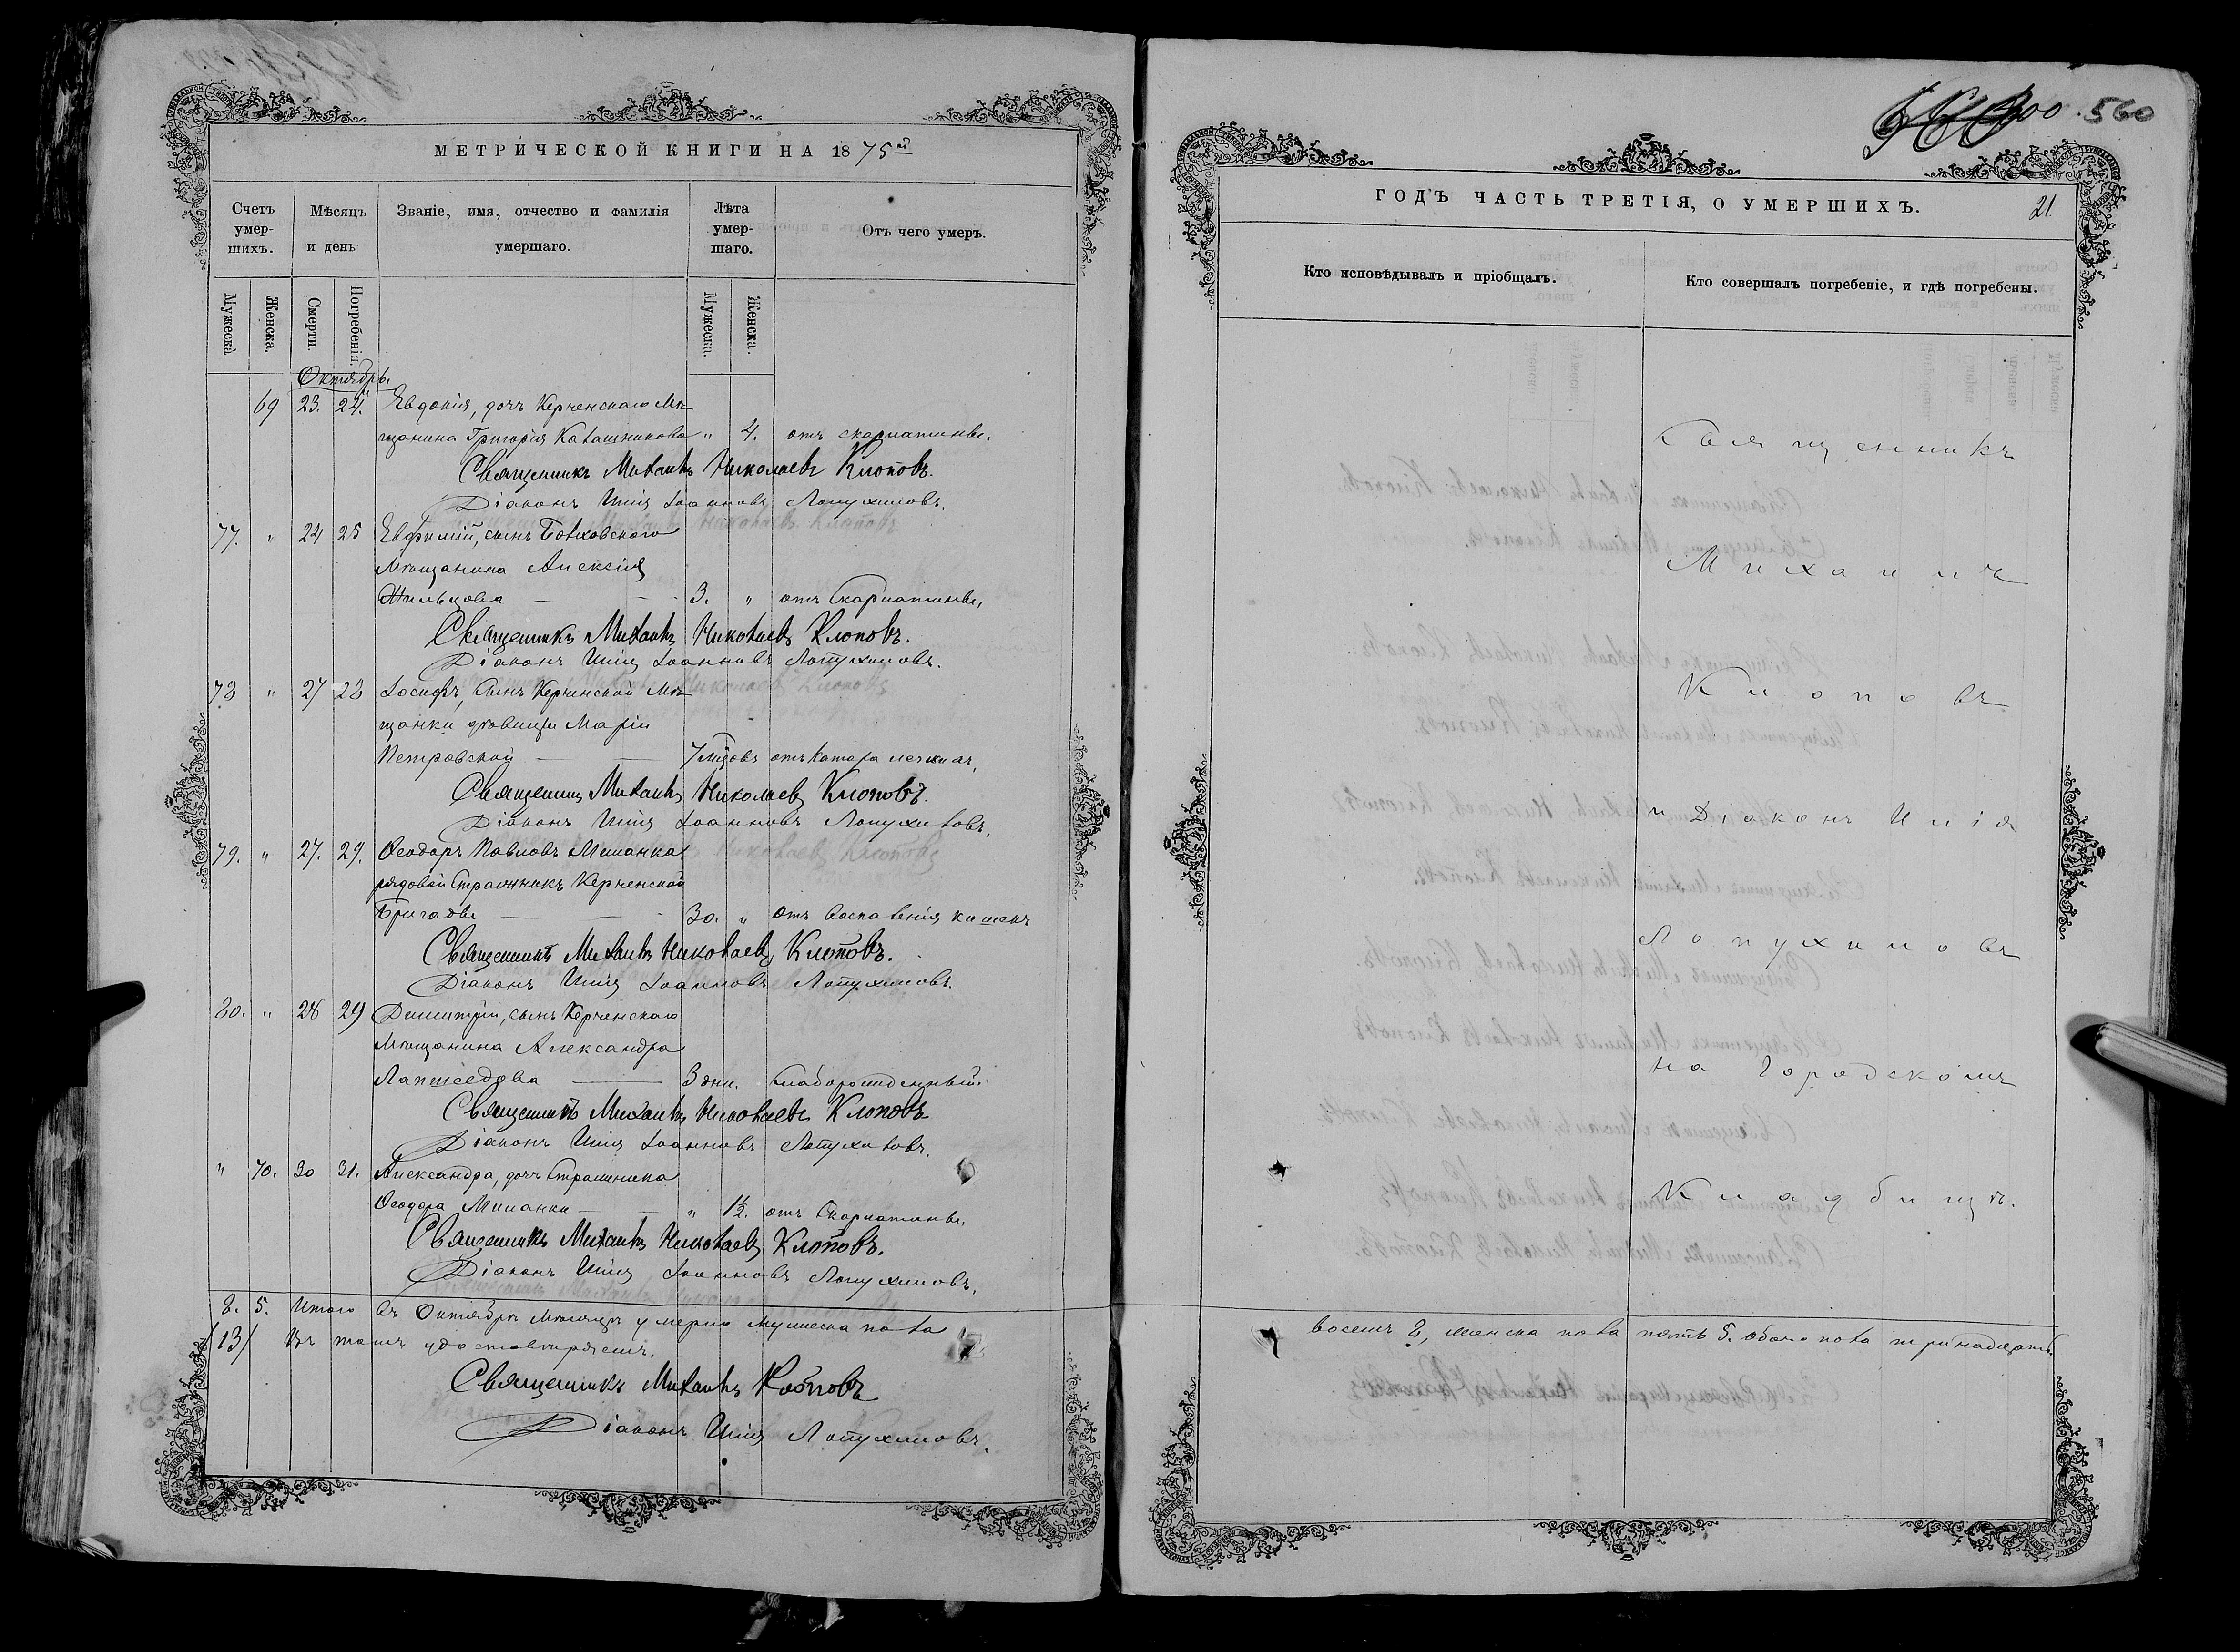 МЕТРИЧЕСКОЙ КНИГИ НА 1875ый
Счетъ умер-шихъ.
Мѣсяцъ и день
Званіе, имя, отчество и фамилія умершаго.
Лѣта умер-шаго.
Отъ чего умеръ.
Мужеска
Женска.
Смерти.
Погребенія.
Мужеска.
Женска.
Октябрь.
69 23. 24. Евдокія, дочь Керченскаго Мѣ-
щанина Григорія Калашникова " 4. отъ скарлатины.
Священникъ Михаилъ Николаевъ Клоповъ.
Діаконъ Илія Іоанновъ Лопухиновъ.
77. " 24 25 Евфимій, сынъ Болховскаго
Мѣщанина Алексія
Жильцова 3. " отъ Скарлатины.
Священникъ Михаилъ Николаевъ Клоповъ.
Діаконъ Илія Іоанновъ Лопухиновъ.
78 " 27 28 Іосифъ, сынъ Керченской Мѣ-
щанки дѣвицы Маріи
Петровской 7 мѣсъ отъ Катара легкихъ.
Священникъ Михаилъ Николаевъ Клоповъ.
Діаконъ Илія Іоанновъ Лопухиновъ.
79. " 27. 29. Ѳеодоръ Павловъ Миланка
рядовой Стражникъ Керченской
Бригады 30. " Отъ Воспаленія кишекъ
Священникъ Михаилъ Николаевъ Клоповъ.
Діаконъ Илія Іоанновъ Лопухиновъ.
80. " 28 29 Димитрій, сынъ Керченскаго
Мѣщанина Александра
Лапшедова 3 дни. слаборожденный
Священникъ Михаилъ Николаевъ Клоповъ
Діаконъ Илія Іоанновъ Лопухиновъ.
" 70. 30 31. Александра, дочь Стражника
Ѳеодора Миланки " 1½. отъ Скарлатины.
Священникъ Михаилъ Николаевъ Клоповъ.
Діаконъ Илія Іоанновъ Лопухиновъ.
8. 5. Итого въ Октябрѣ мѣсяцѣ умерло мужеска пола
(13) Въ томъ удостовѣряемъ.
Священникъ Михаилъ Клоповъ
Діаконъ Илія Лопухиновъ.
560
ГОДЪ ЧАСТЬ ТРЕТІЯ, О УМЕРШИХЪ. 21.
Кто исповѣдывалъ и пріобщалъ.
Кто совершалъ погребеніе, и гдѣ погребены.
Священникъ
Михаилъ
Клоповъ
и Діаконъ Илія
Лопухиновъ
на Городскомъ
Кладбищѣ.
восемь 8, женска пола пять 5. обоего пола тринадцать.